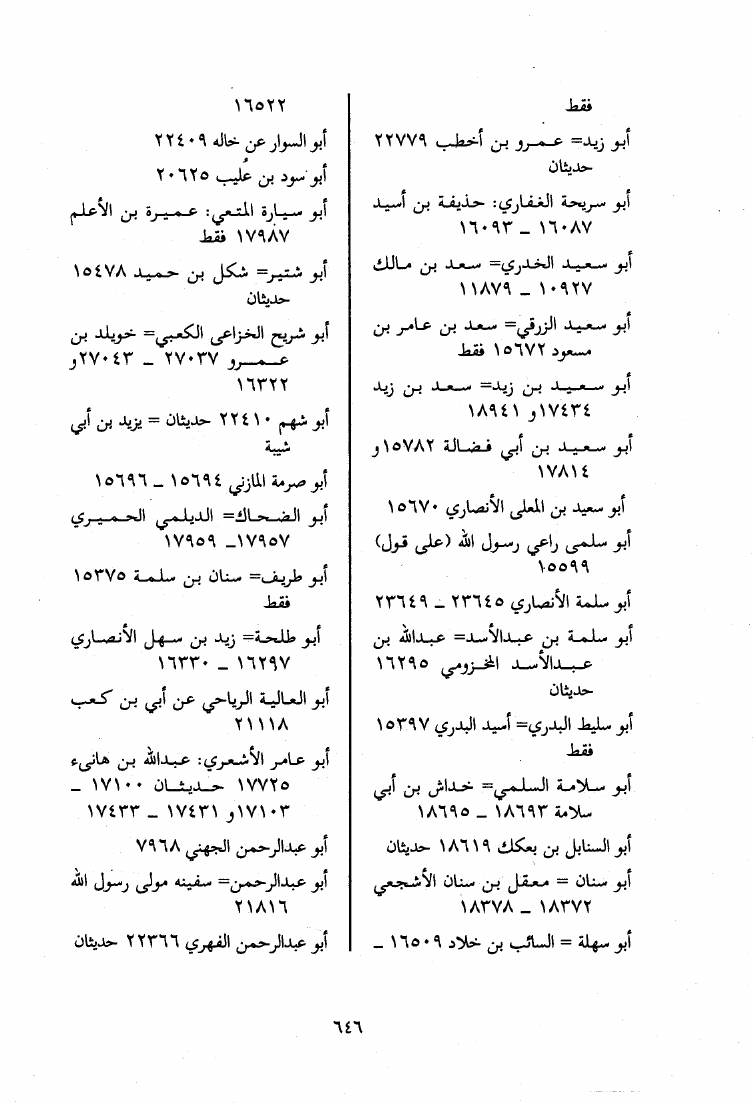 فقط
أبو زيد= عمرو بن أخطب ٢٢٧٧٩
حديثان
أبو سريحة الغفاري: حذيفة بن أسيد
١٦٠٨٧ _ ١٦٠٩٣
أبو سعيد الخدري= سعد بن مالك
١٠٩٢٧ _ ١١٨٧٩
أبو سعيد الزرقي= سعد بن عامر بن
مسعود ١٥٦٧٢ فقط
أبو سعيد بن زيد= سعد بن زيد
١٧٤٣٤و ١٨٩٤١
أبو سعيد بن أبي فضالة ١٥٧٨٢و
١٧٨١٤
أبو سعيد بن المعلى الأنصاري ١٥٦٧٠
أبو سلمى راعي رسول الله (على قول)
١٥٥٩٩
أبو سلمة الأنصاري ٢٣٦٤٥ _ ٢٣٦٤٩
أبو سلمة بن عبدالأسد= عبدالله بن
عبدالأسد المخزومي ١٦٢٩٥
حديثان
أبو سليط البدري= أسيد البدري ١٥٣٩٧
فقط
أبو سلامة السلمي= خداش بن أبي
سلامة ١٨٦٩٣ _ ١٨٦٩٥
أبو السنابل بن بعكك ١٨٦١٩ حديثان
أبو سنان = معقل بن سنان الأشجعي
١٨٣٧٢ _ ١٨٣٧٨
أبو سهلة = السائب بن خلاد ١٦٥٠٩ _
١٦٥٢٢
أبو السوار عن خاله ٢٢٤٠٩
أبو سود بن عُليب ٢٠٦٢٥
أبو سيارة المتعي: عميرة بن الأعلم
١٧٩٨٧ فقط
أبو شتير= شكل بن حميد ١٥٤٧٨
حديثان
أبو شريح الخزاعي الكعبي= خويلد بن
عمرو ٢٧٠٣٧ _ ٢٧٠٤٣و
١٦٣٢٢
أبو شهم ٢٢٤١٠ حديثان = يزيد بن أبي
شيبة
أبو صرمة المازني ١٥٦٩٤ _ ١٥٦٩٦
أبو الضحاك= الديلمي الحميري
١٧٩٥٧_ ١٧٩٥٩
أبو طريف= سنان بن سلمة ١٥٣٧٥
فقط
أبو طلحة= زيد بن سهل الأنصاري
١٦٢٩٧ _ ١٦٣٣٠
أبو العالية الرياحي عن أبي بن كعب
٢١١١٨
أبو عامر الأشعري: عبدالله بن هانىء
١٧٧٢٥ حديثان ١٧١٠٠ _
١٧١٠٣و ١٧٤٣١ _ ١٧٤٣٣
أبو عبدالرحمن الجهني ٧٩٦٨
أبو عبدالرحمن= سفينه مولى رسول الله
٢١٨١٦
أبو عبدالرحمن الفهري ٢٢٣٦٦ حديثان
٦٤٦